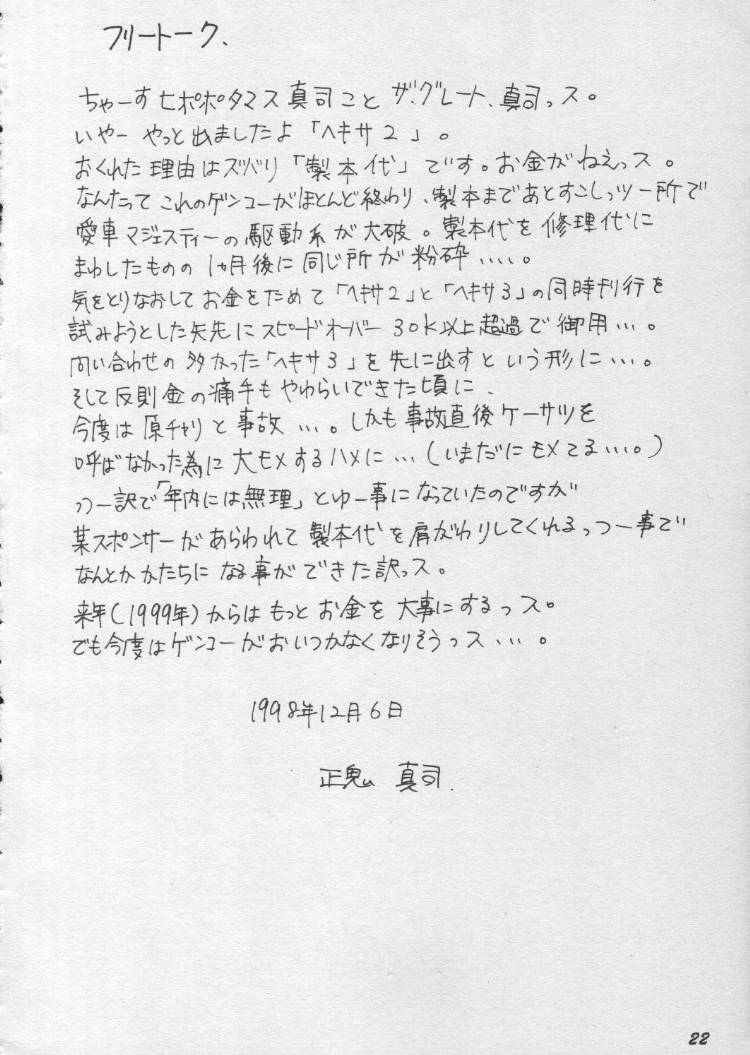 フリートーク、
ちゃーすヒポポタマス真司こと ザ・グレート、真司っス。
いやー やっと出ましたよ「ヘキサ2」。
おくれた理由はズバリ「製本代」です。お金がねえっス。
なんたって これのゲンコーがほとんど終わり、製本まであとすこしっツー所で
愛車マジェスティーの駆動系が大破。製本代を修理代に
まわしたものの 1ヵ月後に同じ所が粉砕‥‥。
気をとりなおしてお金をためて「ヘキサ2」と「ヘキサ3」の同時刊行を
試みようとした矢先にスピードオーバー30k以上超過で御用…。
問い合わせの多かった「ヘキサ3」を先に出すという形に…。
そして反則金の痛手もやわらいできた頃に、
今度は原チャリと事故…。しかも事故直後ケーサツを
呼ばなかった為に大モメするハメに…(いまだにモメてる…。)
っつー訳で「年内には無理」とゆー事になっていたのですが
某スポンサーがあらわれて製本代を肩がわりしてくれるっつー事で
なんとかかたちになる事ができた訳っス。
来年(1999年)からはもっとお金を大事にするっス。
でも今度はゲンコーがおいつかなくなりそうっス…。
1998年12月6日
正鬼 真司.
22